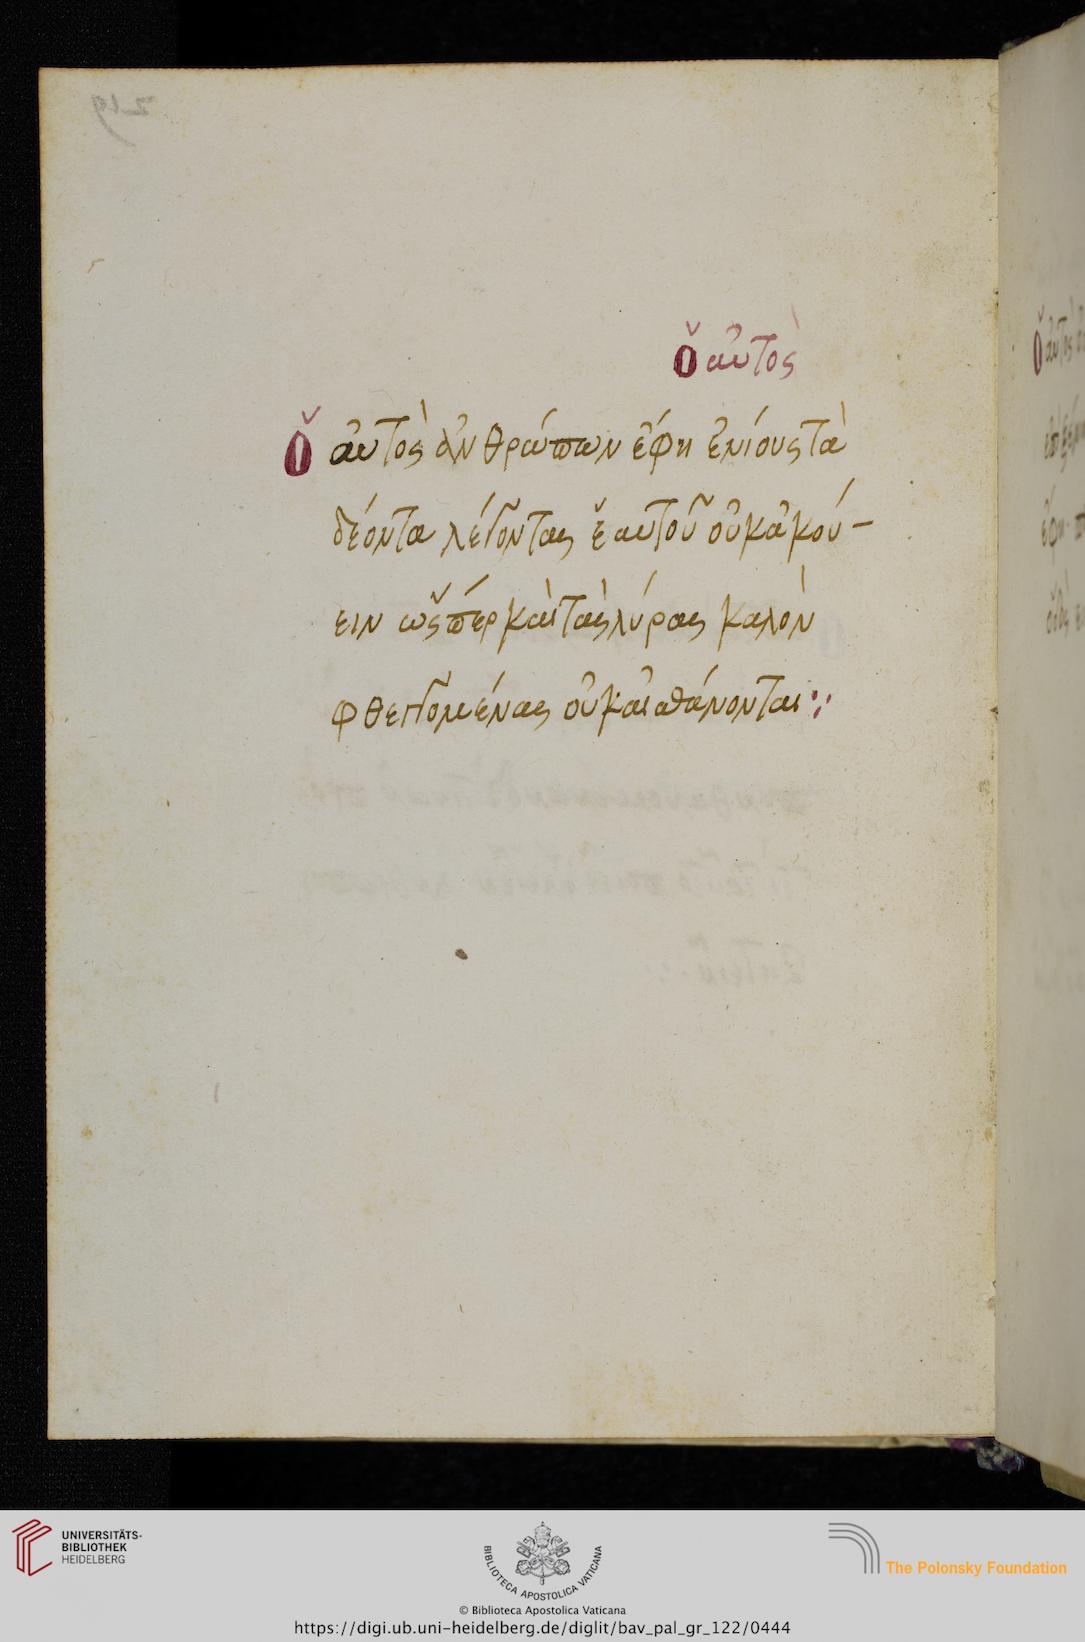 Ὁ αὐτὸς
Ὁ αὐτὸς ἀνθρώπων ἔφη ἐνίους τὰ
δέοντα λέγοντας ἑαυτοῦ οὐκ ἀκού-
ειν ὥσπερ καὶ τὰς λύρας καλὸν
φθεγγομένας οὐκ αἰσθάνονται
219
UNIVERSITÄTS-
BIBLIOTHEK
HEIDELBERG
BIBLIOTECA APOSTOLICA VATICANA
The Polonsky Foundation
© Biblioteca Apostolica Vaticana
https://digi.ub.uni-heidelberg.de/diglit/bav_pal_gr_122/0444